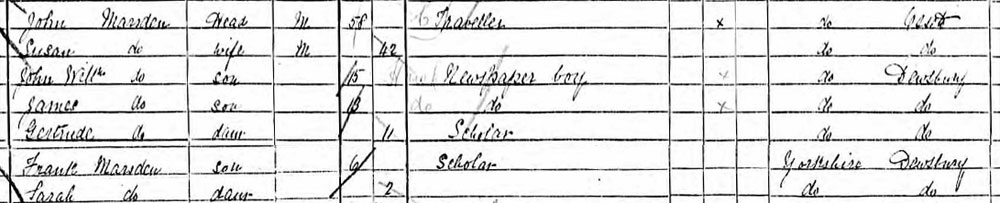 John Marsden Head M 58 Traveller x do
Susan do wife M 42 do do
John Willm do son 15 Newspaper boy x do Dewsbury
James do son 13 do do x do do
Gertrude do daur 11 Scholar do do
Frank Marsden son 6 Scholar Yorkshire Dewsbury
Sarah do daur 2 do do